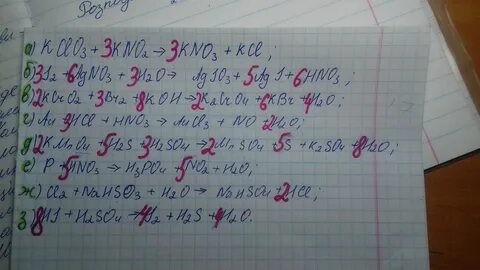 Розпо
а) KClO₃ + 3KNO₂ → 3KNO₃ + KCl;
б) 3I₂ + 6AgNO₃ + 3H₂O → AgIO₃ + 5AgI + 6HNO₃;
в) 2KCrO₂ + 3Br₂ + 8KOH → 2K₂CrO₄ + 6KBr + 4H₂O;
г) Au 3HCl + HNO₃ → AuCl₃ + NO 2H₂O;
д) 2KMnO₄ 5H₂S 3H₂SO₄ → 2MnSO₄ + 5S + K₂SO₄ + 8H₂O;
е) P + 5HNO₃ → H₃PO₄ + 5NO₂ + H₂O;
ж) Cl₂ + NaHSO₃ + H₂O → NaHSO₄ + 2HCl;
з) 8HI + H₂SO₄ → 4I₂ + H₂S + 4H₂O.